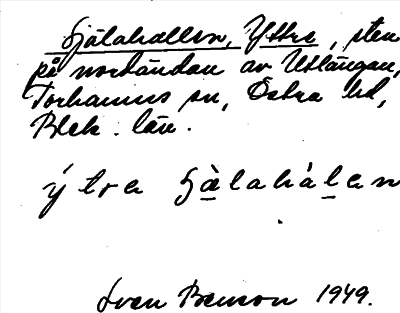 Själahallen, Yttre, sten
på nordändan av Utlängan,
Torhamns sn, Östra hd,
Blek. län.
ý tre sjàlahálen
Sven Benson 1949.